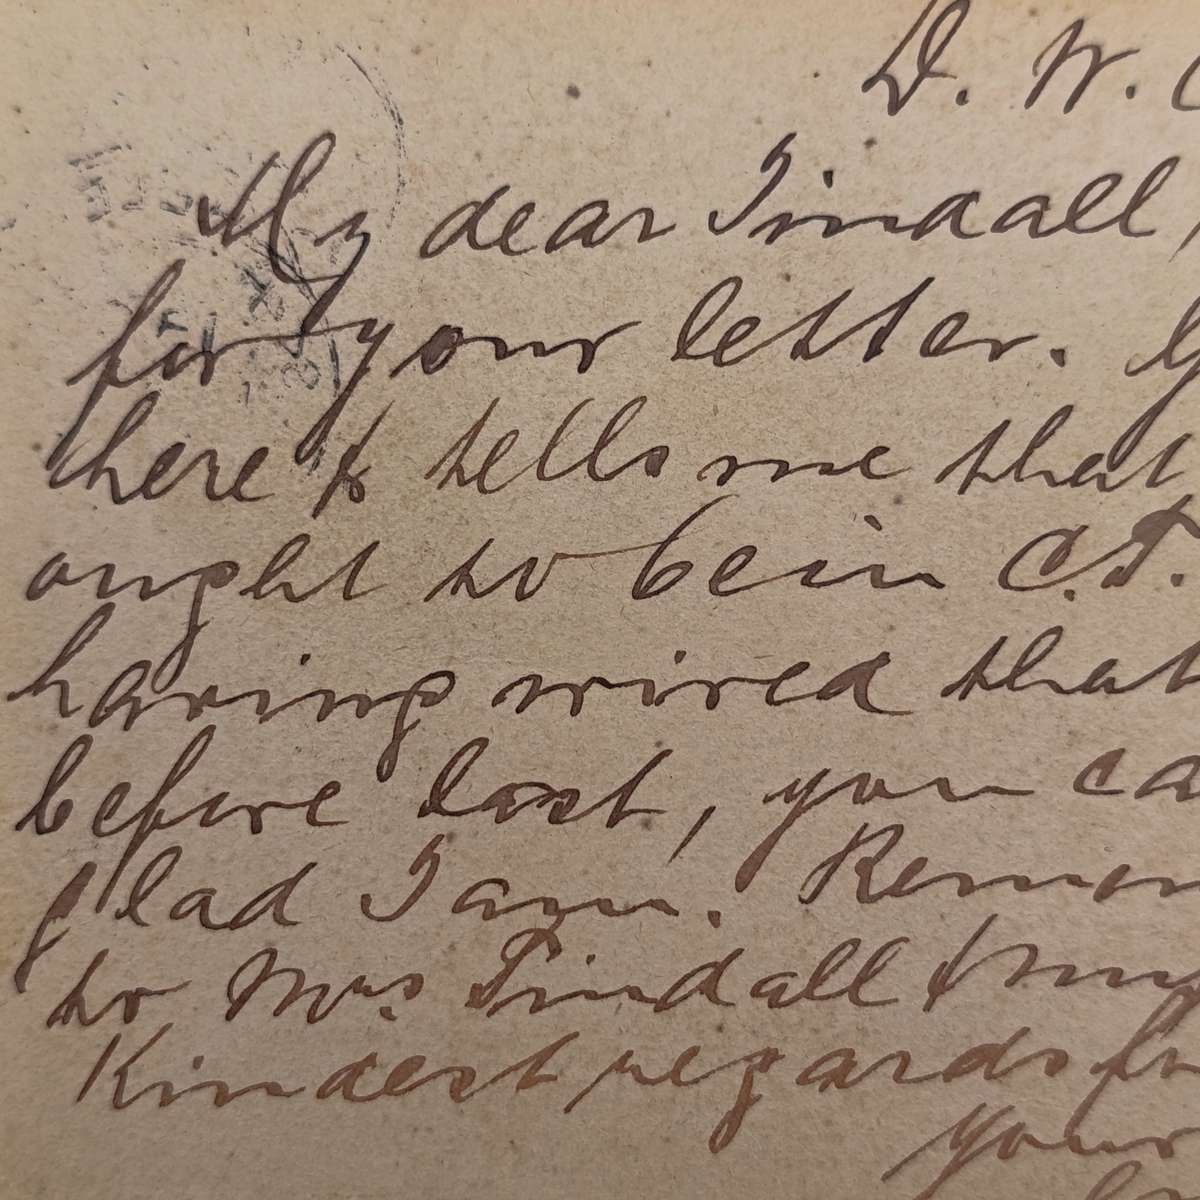 D. W.
My dear Tindall,
for your letter.
here & tells me that
ought to be in C.T.
having wired that
before last, you ca
glad I am. Remem
to Mrs. Tindall &
Kindest regards
your